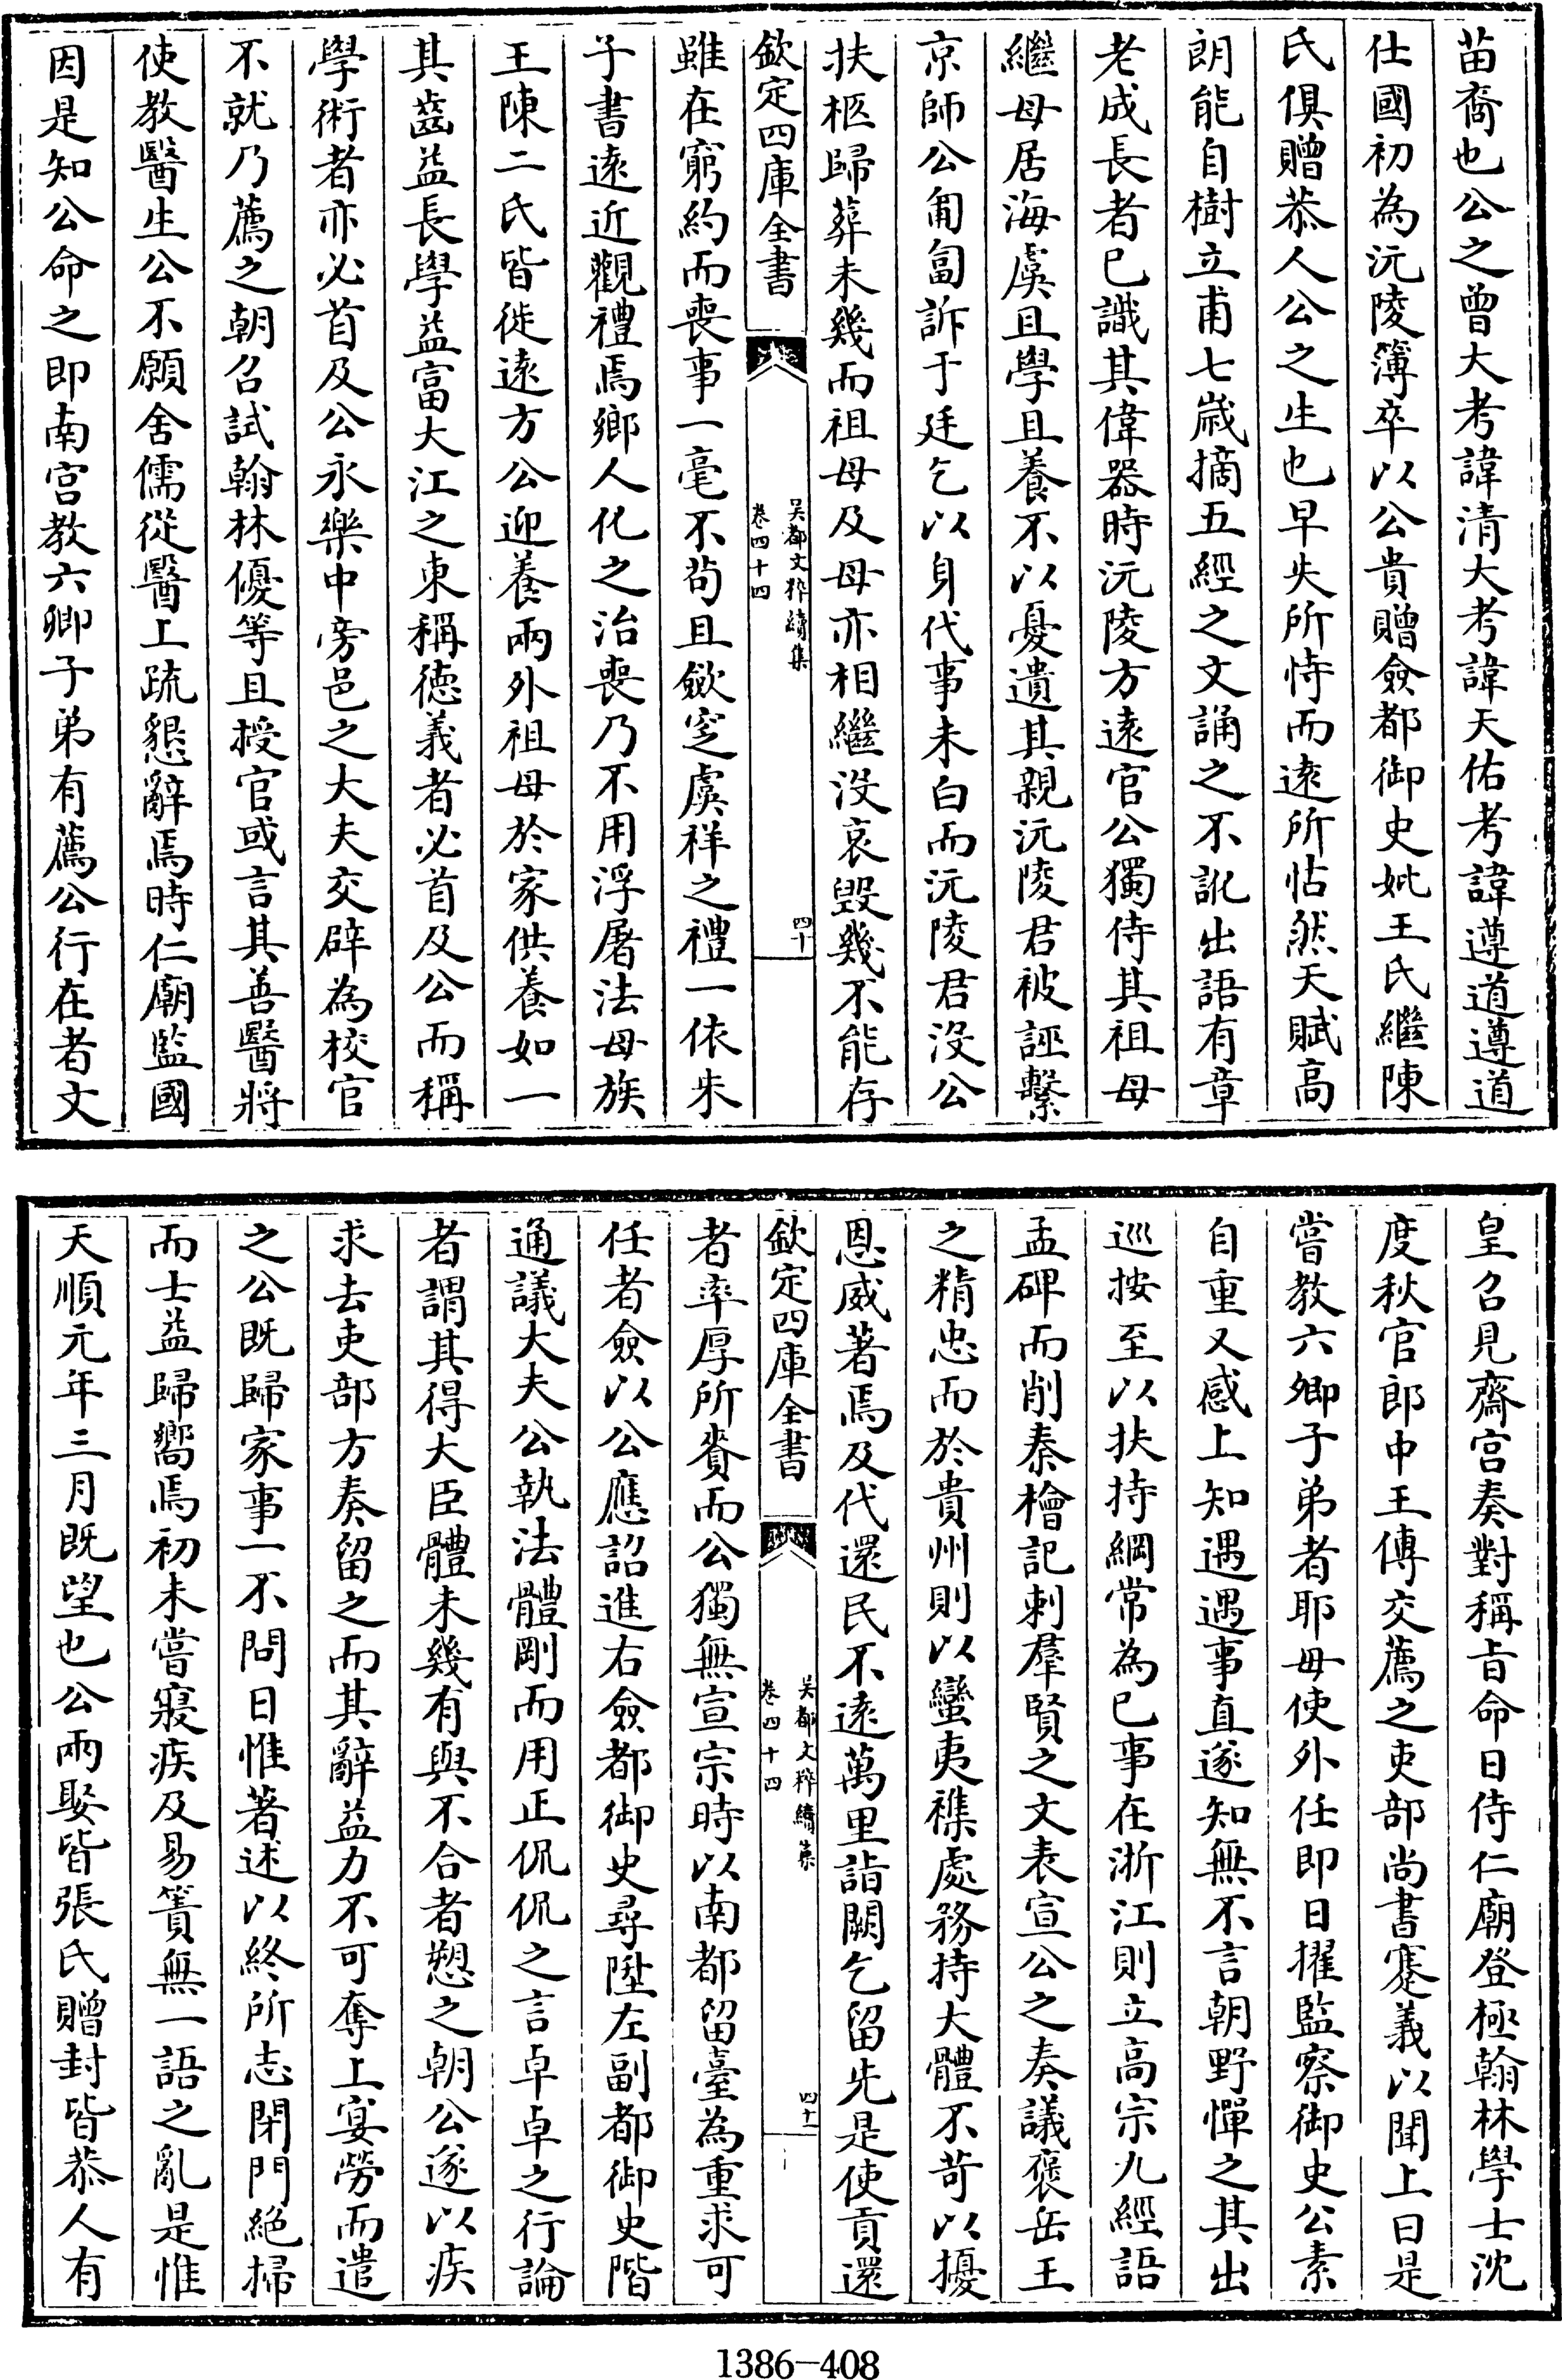 苗裔也公之曾大考諱清大考諱天佑考諱遵道遵道
仕國初為沅陵簿卒以公貴贈僉都御史妣王氏繼陳
氏俱贈恭人公之生也早失所恃而遠所怙然天賦高
朗能自樹立甫七歲摘五經之文誦之不訛出語有章
老成長者已識其偉器時沅陵方遠官公獨侍其祖母
繼母居海虞且學且養不以憂遺其親沅陵君被誣繫
京師公匍匐訴于廷乞以身代事未白而沅陵君沒公
扶柩歸葬未幾而祖母及母亦相繼沒哀毀幾不能存
欽定四庫全書
吳都文粹續集
卷四十四
四十
雖在窮約而喪事一毫不茍且斂窆虞祥之禮一依朱
子書遠近觀禮焉鄉人化之治喪乃不用浮屠法母族
王陳二氏皆徙遠方公迎養兩外祖母於家供養如一
其齒益長學益富大江之東稱德義者必首及公而稱
學術者亦必首及公永樂中旁邑之大夫交辟為校官
不就乃薦之朝召試翰林優等且授官或言其善醫將
使教醫生公不願舍儒從醫上疏懇辭焉時仁廟監國
因是知公命之即南宮教六卿子弟有薦公行在者文
皇召見齋宮奏對稱旨命日侍仁廟登極翰林學士沈
度秋官郎中王傳交薦之吏部尚書蹇義以聞上曰是
嘗教六卿子弟者耶毋使外任即日擢監察御史公素
自重又感上知遇遇事直遂知無不言朝野憚之其出
巡按至以扶持綱常為已事在浙江則立高宗九經語
孟碑而削秦檜記刺羣賢之文表宣公之奏議褒岳王
之精忠而於貴州則以蠻夷襍處務持大體不苛以擾
恩威著焉及代還民不遠萬里詣闕乞留先是使貢還
欽定四庫全書
吳都文粹續集
卷四十四
四十一
者率厚所賚而公獨無宣宗時以南都留臺為重求可
任者僉以公應詔進右僉都御史尋陞左副都御史階
通議大夫公執法體剛而用正侃侃之言卓卓之行論
者謂其得大臣體未幾有與不合者愬之朝公遂以疾
求去吏部方奏留之而其辭益力不可奪上宴勞而遣
之公既歸家事一不問日惟著述以終所志閉門絕掃
而士益歸嚮焉初未嘗寢疾及易簀無一語之亂是惟
天順元年三月既望也公兩娶皆張氏贈封皆恭人有
1386-408